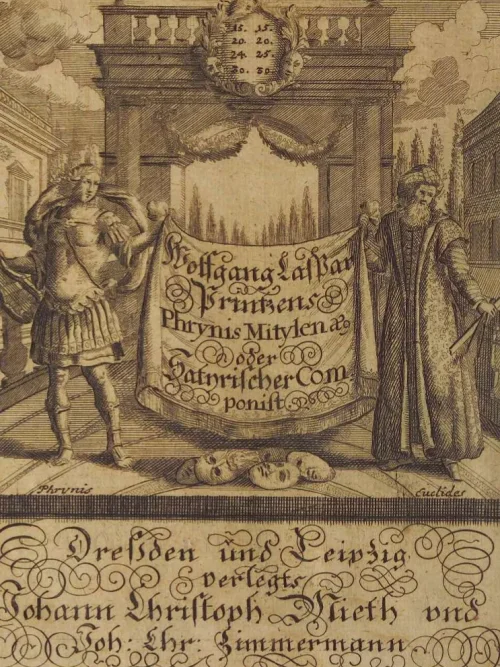 15. 15.
20. 20.
24. 25.
30. 30.
Wolffgang Caspar
Printzens
Phrynis Mitylenæ
oder
Satyrischer Com
ponist.
Phrynis
Euclides
Dreßden und Leipzig
verlegts
Johann Christoph Mieth und
Joh: Chr: Zimmermann.